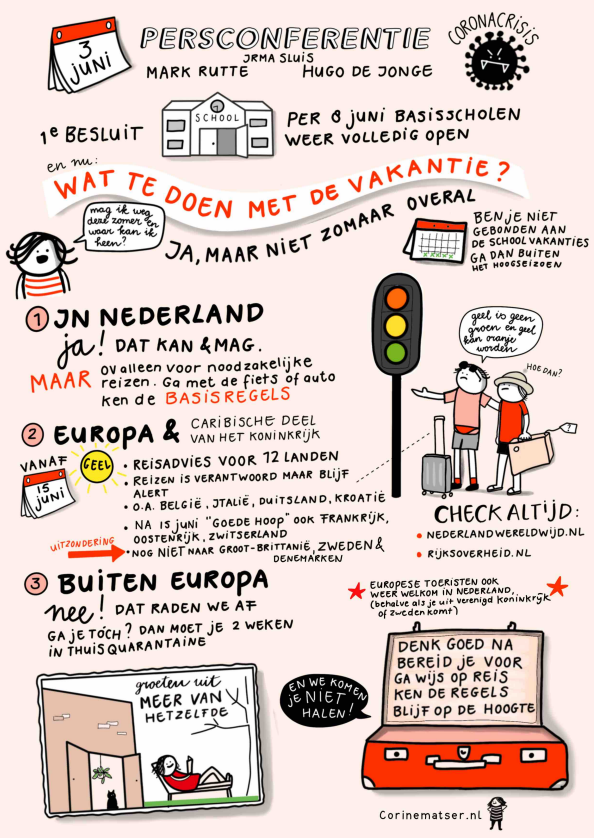 3
JUNI
PERSCONFERENTIE
IRMA SLUIS
MARK RUTTE HUGO DE JONGE
CORONACRISIS
1e BESLUIT
SCHOOL
PER 8 JUNI BASISSCHOLEN
WEER VOLLEDIG OPEN
en nu:
WAT TE DOEN MET DE VAKANTIE?
mag ik weg
deze zomer en
waar kan ik
heen?
JA, MAAR NIET ZOMAAR OVERAL
BEN JE NIET
GEBONDEN AAN
DE SCHOOLVAKANTIES
GA DAN BUITEN
HET HOOGSEIZOEN
1 IN NEDERLAND
ja! DAT KAN & MAG.
MAAR OV alleen voor noodzakelijke
reizen. Ga met de fiets of auto
ken de BASISREGELS
geel is geen
groen en geel
kan oranje
worden
HOE DAN?
2 EUROPA & CARIBISCHE DEEL
VAN HET KONINKRIJK
VANAF
15
JUNI
GEEL
• REISADVIES VOOR 12 LANDEN
• REIZEN IS VERANTWOORD MAAR BLIJF
ALERT
• O.A. BELGIË, ITALIË, DUITSLAND, KROATIË
• NA 15 JUNI "GOEDE HOOP" OOK FRANKRIJK,
OOSTENRIJK, ZWITSERLAND
UITZONDERING
• NOG NIET NAAR GROOT-BRITTANIË, ZWEDEN &
DENEMARKEN
?
CHECK ALTIJD:
• NEDERLANDWERELDWIJD.NL
• RIJKSOVERHEID.NL
3 BUITEN EUROPA
nee! DAT RADEN WE AF
GA JE TÓCH? DAN MOET JE 2 WEKEN
IN THUISQUARANTAINE
EUROPESE TOERISTEN OOK
WEER WELKOM IN NEDERLAND,
(behalve als je uit verenigd koninkrijk
of zweden komt)
groeten uit
MEER VAN
HETZELFDE
EN WE KOMEN
JE NIET
HALEN!
DENK GOED NA
BEREID JE VOOR
GA WIJS OP REIS
KEN DE REGELS
BLIJF OP DE HOOGTE
Corinematser.nl